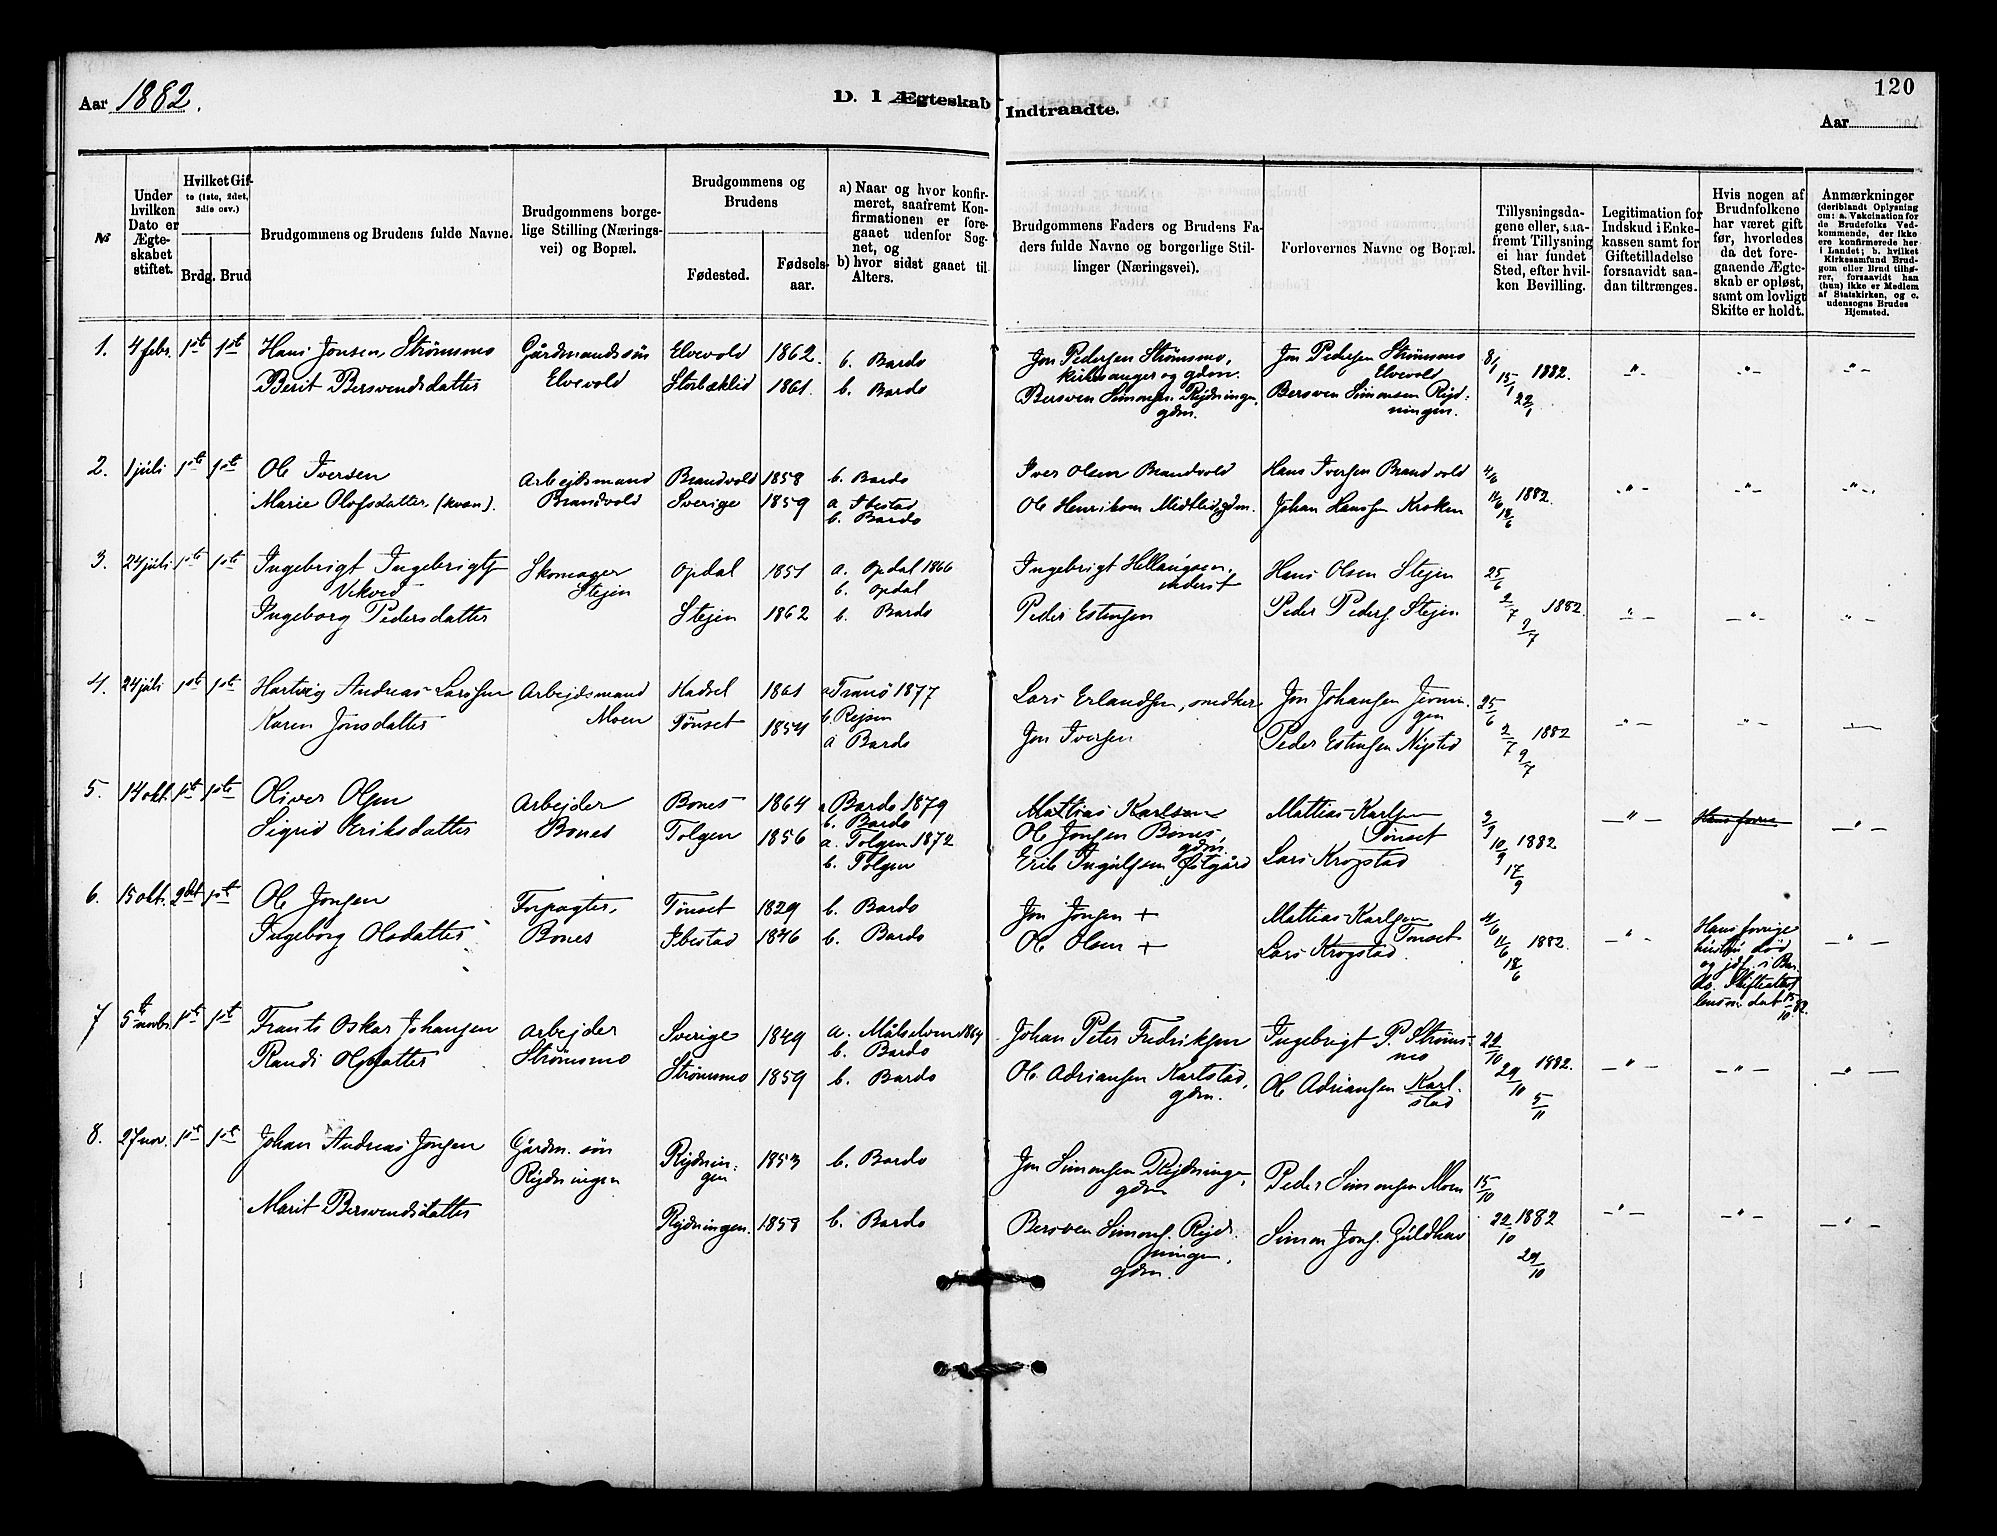 120
Aar 1882.
D. 1 Ægteskab Indtraadte.
Aar
No
Under hvilken Dato er Ægteskabet stiftet.
Hvilket Gifte (1ste, 2det, 3die osv.)
Brdg. Brud
Brudgommens og Brudens fulde Navne.
Brudgommens borgelige Stilling (Næringsvei) og Bopæl.
Brudgommens og Brudens
Fødested. Fødselsaar.
a) Naar og hvor konfirmeret, saafremt Konfirmationen er foregaaet udenfor Sognet, og
b) hvor sidst gaaet til Alters.
Brudgommens Faders og Brudens Faders fulde Navne og borgerlige Stillinger (Næringsvei).
Forlovernes Navne og Bopæl.
Tillysningsdagene eller, saafremt Tillysning ei har fundet Sted, efter hvilken Bevilling.
Legitimation for Indskud i Enkekassen samt for Giftetilladelse forsaavidt saadan tiltrænges.
Hvis nogen af Brudnfolkene har været gift før, hvorledes da det foregaaende Ægteskab er opløst, samt om lovligt Skifte er holdt.
Anmærkninger (deriblandt Oplysning om: a. Vakcination for de Brudefolks Vedkommende, der ikke ere konfirmerede her i Landet; b. hvilket Kirkesamfund Brudgom eller Brud tilhører, forsaavidt han (hun) ikke er Medlem af Statskirken, og c. udensogns Brudes Hjemsted.
1. 4 febr. 1ste 1ste Hans Jonsen Strømsmo Gårdmandssøn Elvevold 1862. b. Bardo Jon Pedersen Strømsmo, Jon Pedersen Strømsmo 8/1
kirkesanger og gdm. Elvevold 15/1 1882. -"- -"- -"-
Berit Bersvendsdatter Elvevold Storbæklid 1861. b. Bardo Bersven Simonsen Rydningen, Bersven Simonsen Ryd-
gdm. ningen. 22/1
2. 1 juli 1ste 1ste Ole Iversen Arbejdsmand Brandvold 1858 b. Bardo Iver Olsen Brandvold Hans Iversen Brandvold 4/6
Marie Olofsdatter (kvæn). Brandvold Sverige 1859 a. Ibestad Ole Henriksen Medtlid, gdm. Johan Hanssen Kroken 11/6 1882. -"- -"- -"-
b. Bardo 18/6
3. 24 juli 1ste 1ste Ingebrigt Ingebrigts. Skomager Opdal 1851 a. Opdal 1866 Ingebrigt Hallingsen, Hans Olsen Stejen 25/6
Vikved Stejen b. Opdal inderst
Ingeborg Pedersdatter Stejen 1862 b. Bardo Peder Estensen Peder Peders. Stejen 2/7 1882. -"- -"- -"-
9/7
4. 24 juli 1ste 1ste Hartvig Andreas Larssen Arbejdsmand Hadsel 1861 a Tranö 1877 Lars Erlandsen, snedker Jon Johansen 25/6
Karen Jonsdatter Moen Tønset 1854 b. Rejsen Jon Iversen Peder Estensen Nysted 2/7 1882 -"- -"- -"-
a Bardo 9/7
5. 14 okt. 1ste 1ste Oliver Olsen Arbejder Bones 1864 a Bardo 1879 Mattias Karlsen Mattias Karlsen 3/9 -"- Hans forrie -"-
b. Bardo Ole Jonsen Bones, Tønset
Sigrid Eriksdatter Bones Tolgen 1856 a. Tolgen 1872 gdm. 10/9 1882
b. Tolgen Erik Ingulfsen Østgård Lars Krogstad 17/9
6. 15 okt. 2det 1ste Ole Jonsen Forpagter, Tønset 1829 b. Bardo Jon Jonsen + Mattias Karlsen 4/6 Hans forrige
Ingeborg Olsdatter Bones Ibestad 1846 b. Bardo Ole Olsen + Tønset 11/6 1882. -"- hustru død -"-
Lars Krogstad 18/6 og jdf. i Bar-
do. Skifteattest
lensm. dat 15/10 82.
7 5te novbr. 1ste 1ste Frants Oskar Johansen Arbejder Sverige 1849 a. Målselven 1864 Johan Peter Fredriksen Ingebrigt P. Strøms- 22/10
Randi Olsdatter Strømsmo b. Bardo mo
Strømsmo 1859 b. Bardo Ole Adriansen Karlstad, Ole Adriansen Karl- 29/10 1882. -"- -"- -"-
gdm. stad 5/11
8. 27 nov. 1ste 1ste Johan Andreas Jonsen Gårdm. søn Rydnin- 1853 b. Bardo Jon Simonsen Rydningen, Peder Simonsen Moen 15/10
Rydningen gen gdm
Marit Bersvendsdatter Rydningen. 1858 b. Bardo Bersven Simons. Ryd- Simon Jons. Guldhav 22/10 1882 -"- -"- -"-
ningen, 29/10
gdm.